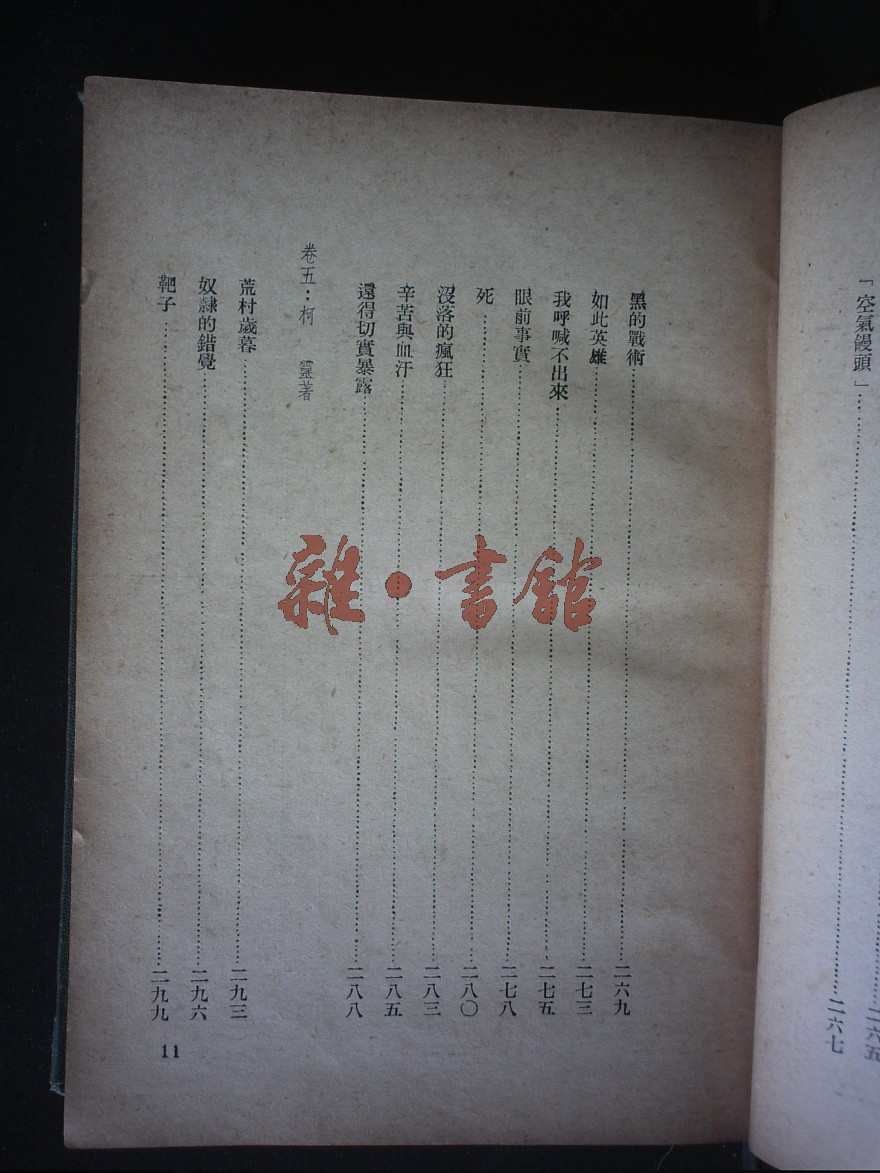 二六五
「空氣饅頭」二六七
黑的戰術二六九
如此英雄二七三
我呼喊不出來二七五
眼前事實二七八
死二八〇
沒落的瘋狂二八三
辛苦與血汗二八五
還得切實暴露二八八
卷五：柯靈著
荒村歲暮二九三
奴隸的錯覺二九六
靶子二九九
11
雜·書館